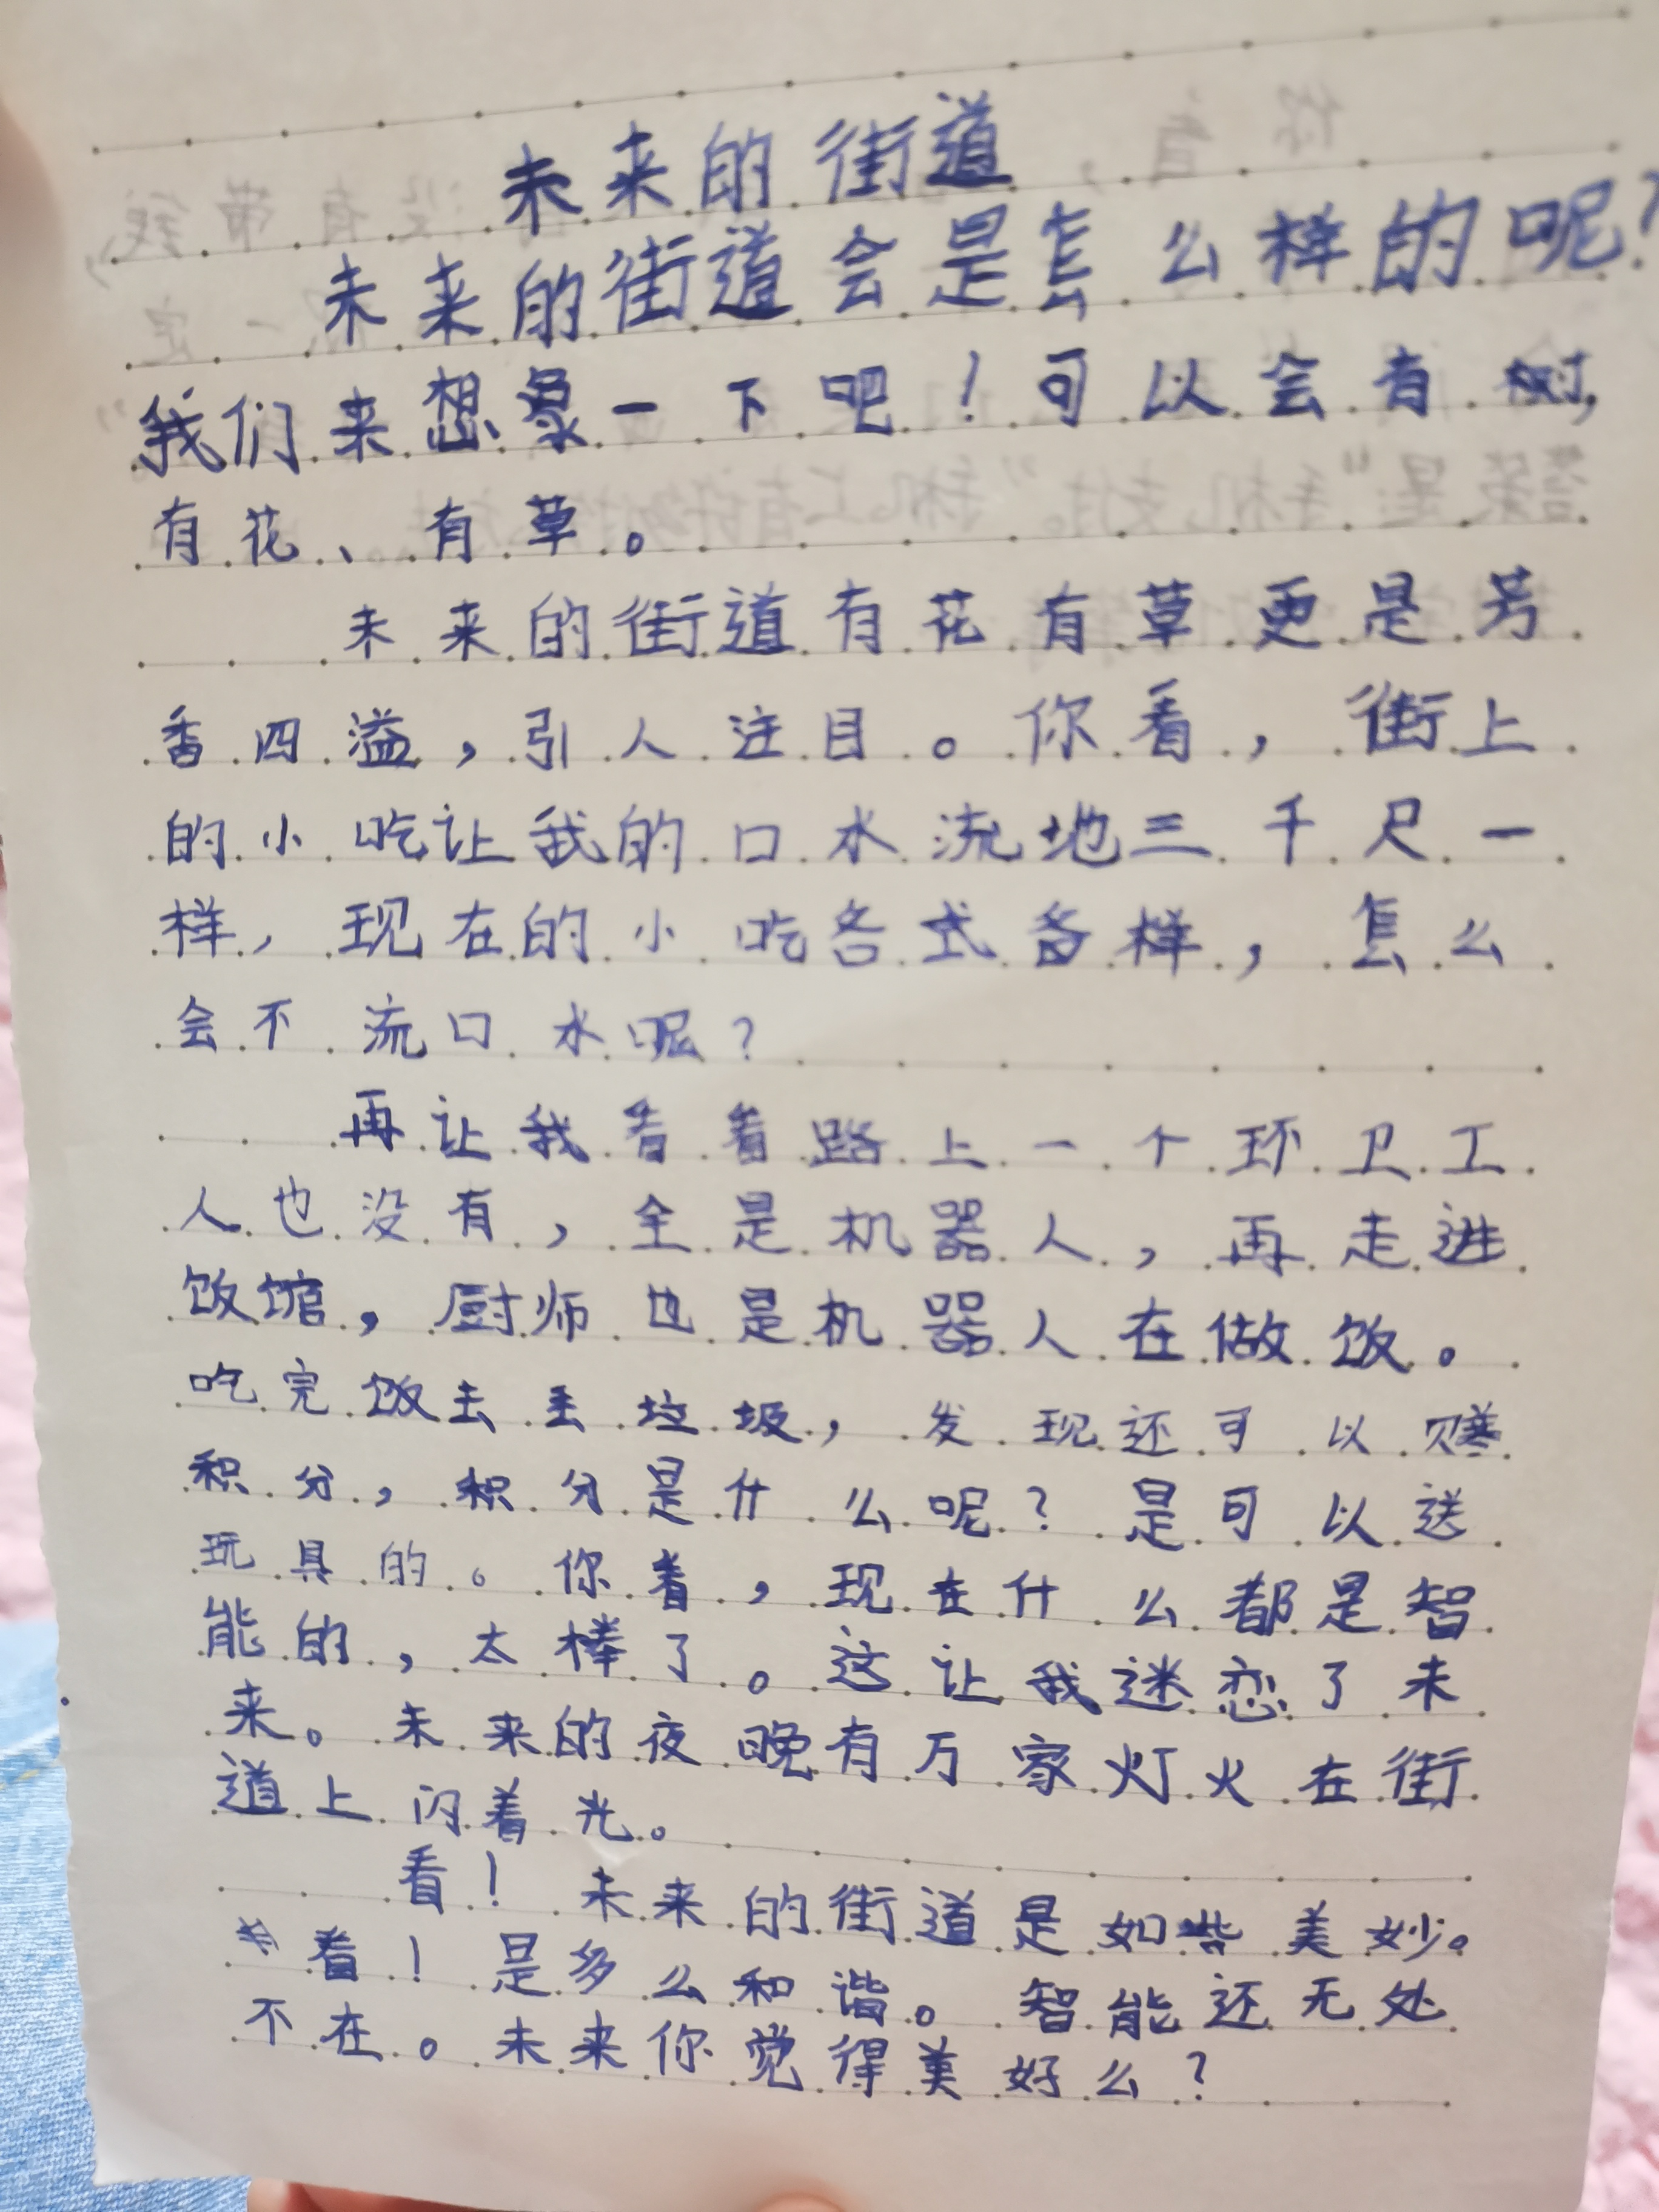 未来的街道
未来的街道会是怎么样的呢?
我们来想象一下吧!可以会有树,
有花、有草。
未来的街道有花有草更是芳
香四溢,引人注目。你看,街上
的小吃让我的口水流地三千尺一
样,现在的小吃各式各样,怎么
会不流口水呢?
再让我看看路上一个环卫工
人也没有,全是机器人,再走进
饭馆,厨师也是机器人在做饭。
吃完饭去丢垃圾,发现还可以赚
积分,积分是什么呢?是可以送
玩具的。你看,现在什么都是智
能的,太棒了。这让我迷恋了未
来。未来的夜晚有万家灯火在街
道上闪着光。
看!未来的街道是如些美妙。
看!是多么和谐。智能还无处
不在。未来你觉得美好么?